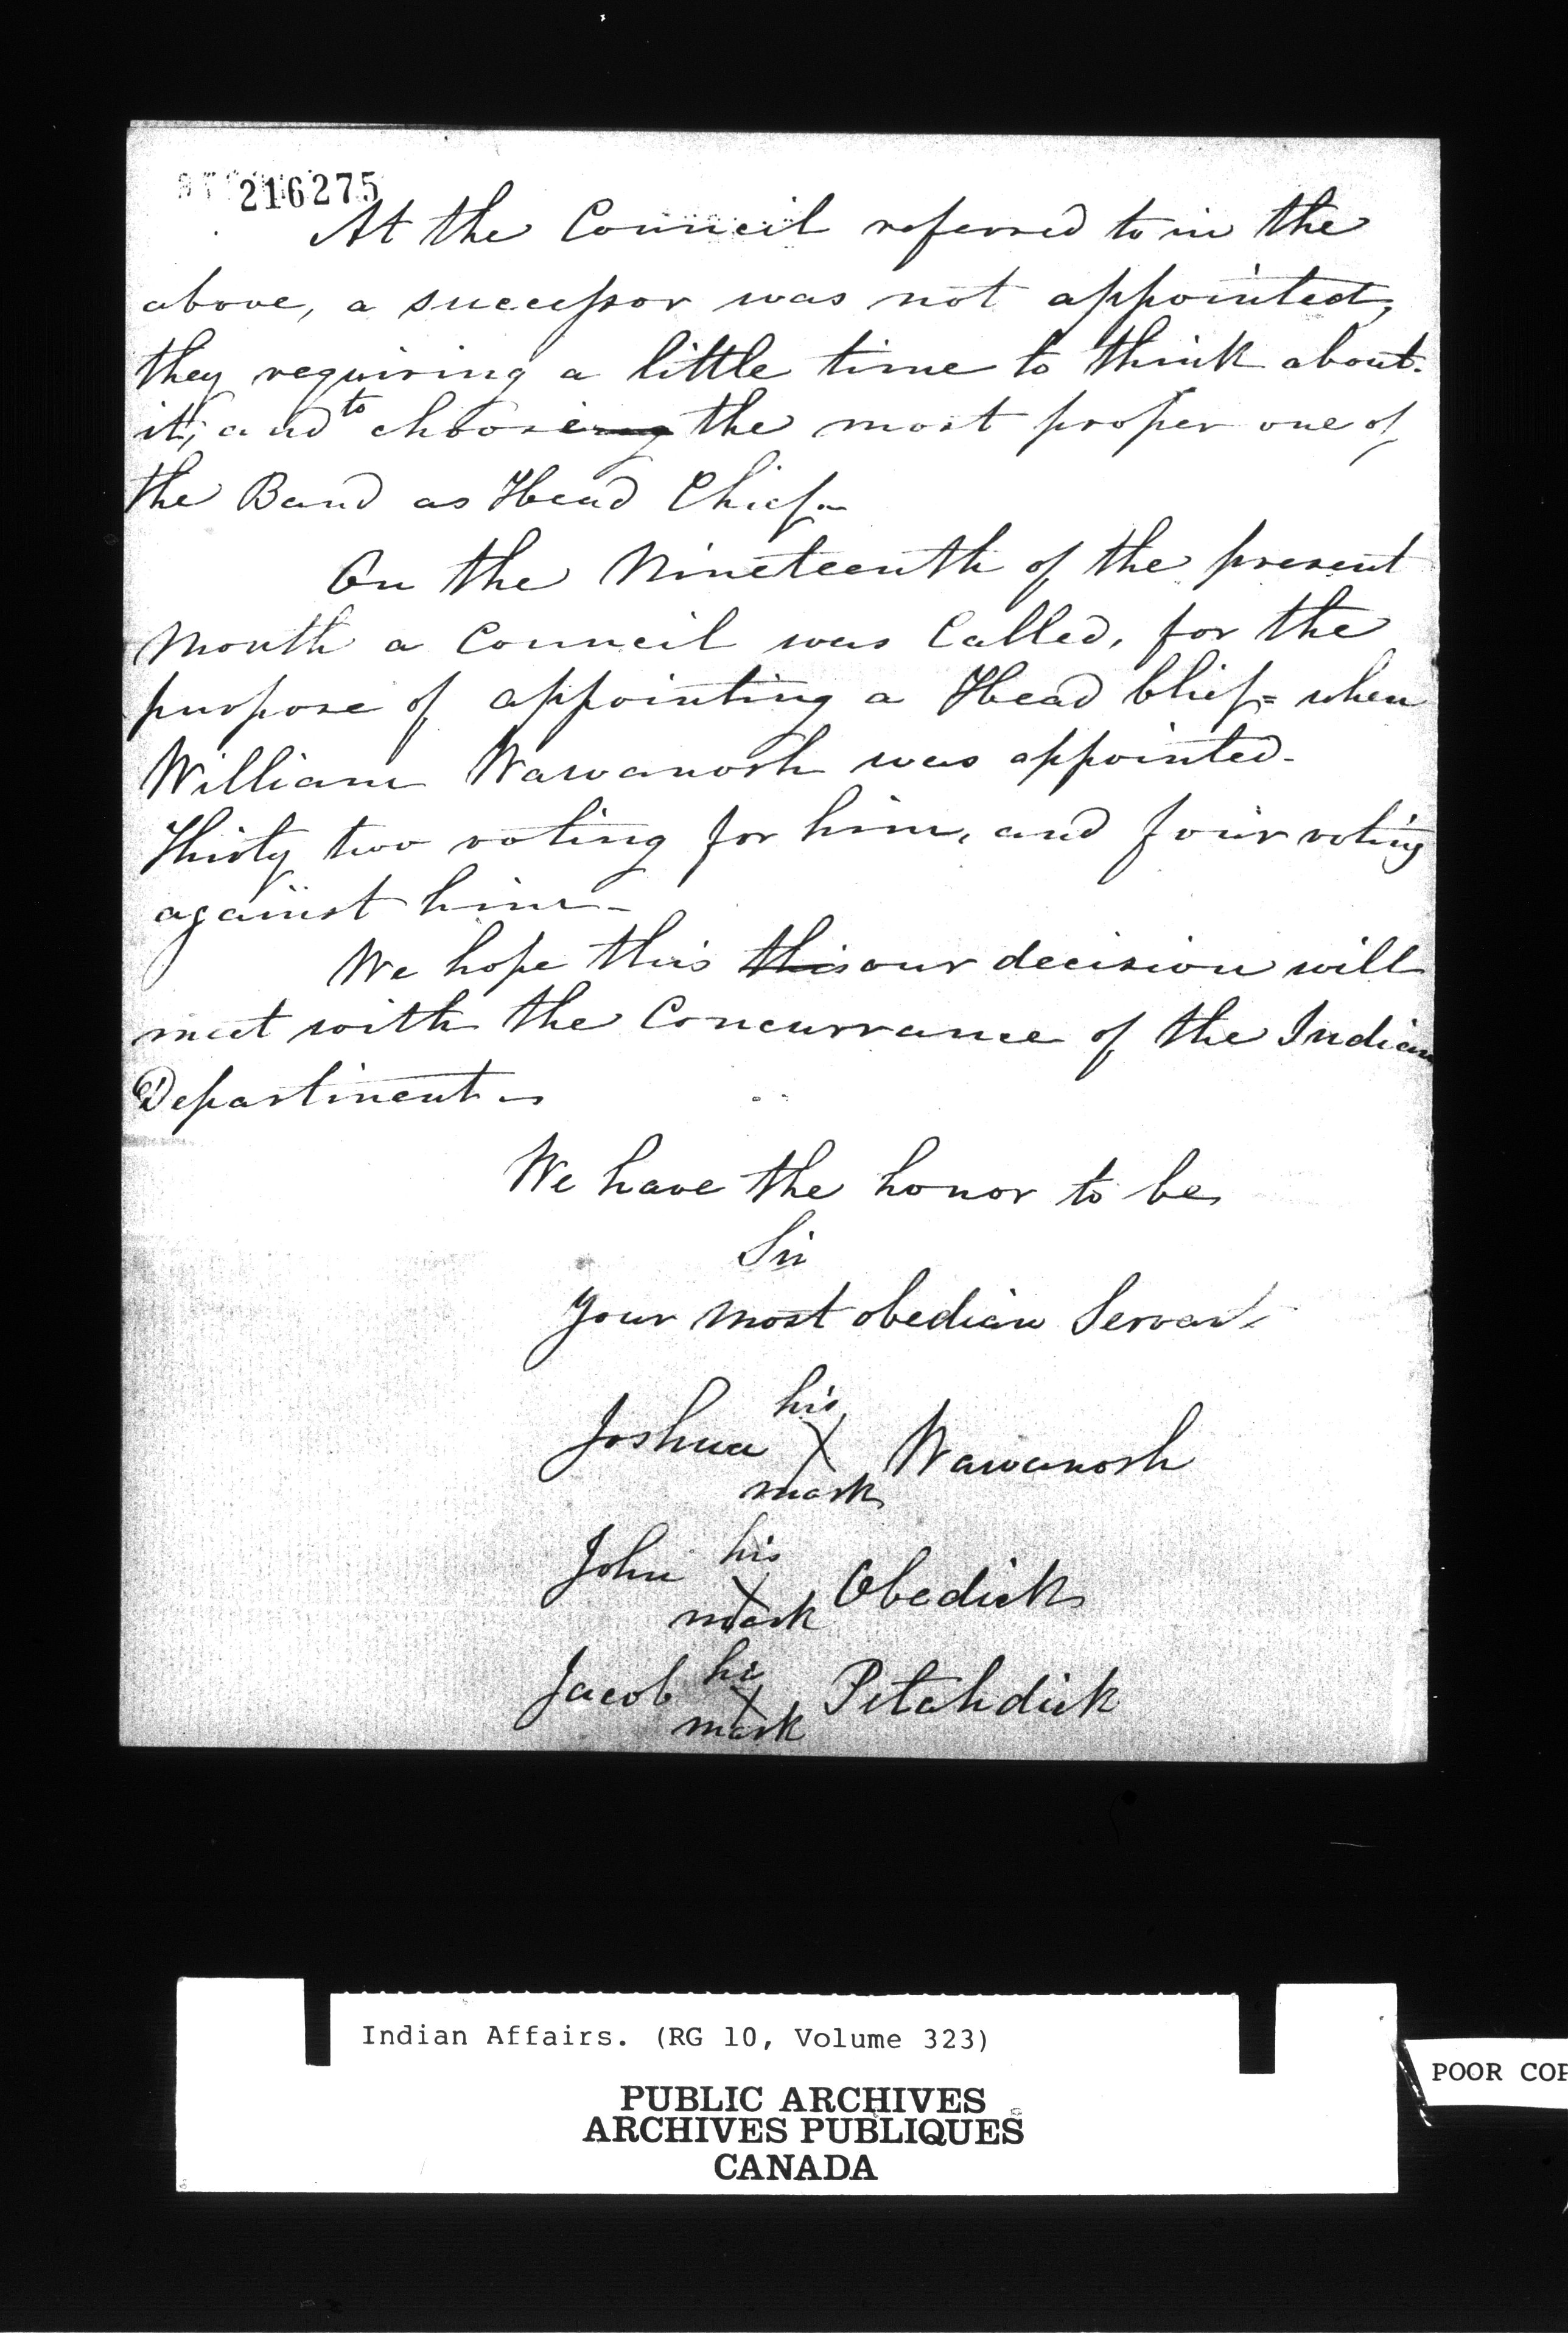 216275
At the Council referred to in the
above, a successor was not appointed,
they requiring a little time to think about
it; and to choose the most proper one of
the Band as Head Chief.
On the Nineteenth of the present
Month a Council was Called, for the
purpose of appointing a Head Chief = when
William Wawanosh was appointed -
Thirty two voting for him, and four voting
against him -
We hope this this our decision will
meet with the Concurrance of the Indian
Department -
We have the honor to be
Sir
Your most obedian Servant
his
Joshua X Wawanosh
mark
his
John X Obedick
mark
his
Jacob X Petahdick
mark
Indian Affairs. (RG 10, Volume 323)
PUBLIC ARCHIVES
ARCHIVES PUBLIQUES
CANADA
POOR COP